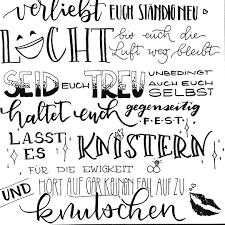 verliebt EUCH STÄNDIG NEU
LACHT bis euch die
Luft weg bleibt
SEID EUCH TREU UNBEDINGT
AUCH EUCH
SELBST
haltet euch gegenseitig
FEST
LASST
ES KNISTERN
FÜR DIE EWIGKEIT
UND HÖRT AUF GAR KEINEN FALL AUF ZU
knutschen